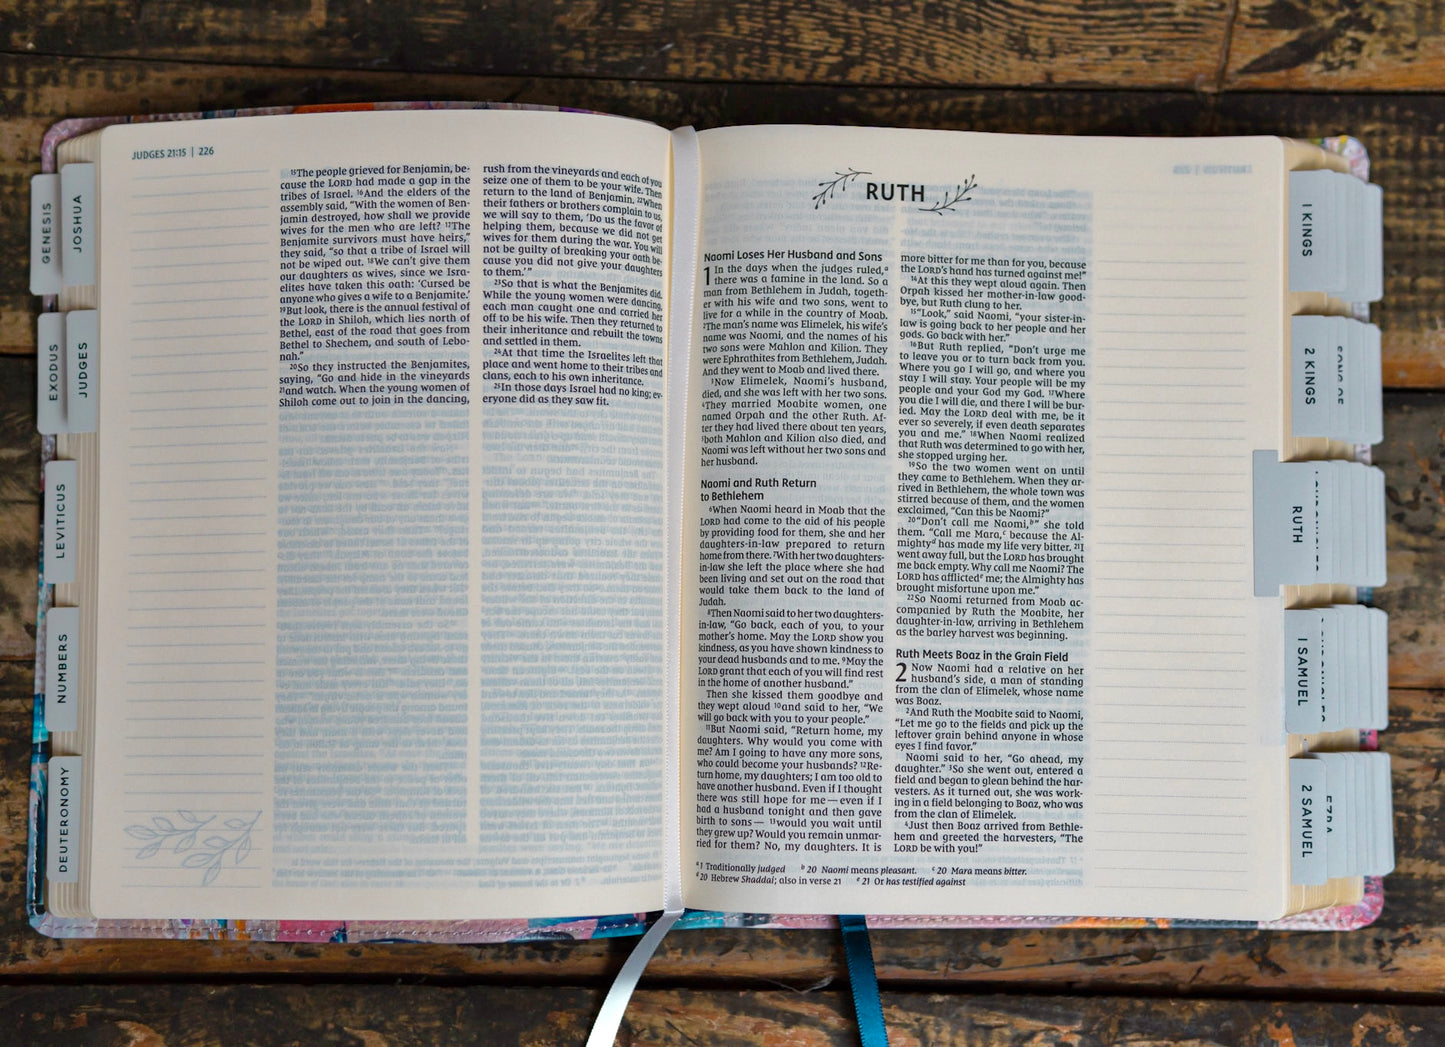 JUDGES 21:15 | 226
¹⁵The people grieved for Benjamin, be-
cause the LORD had made a gap in the
tribes of Israel. ¹⁶And the elders of the
assembly said, “With the women of Ben-
jamin destroyed, how shall we provide
wives for the men who are left? ¹⁷The
Benjamite survivors must have heirs,”
they said, “so that a tribe of Israel will
not be wiped out. ¹⁸We can’t give them
our daughters as wives, since we Isra-
elites have taken this oath: ‘Cursed be
anyone who gives a wife to a Benjamite.’
¹⁹But look, there is the annual festival of
the LORD in Shiloh, which lies north of
Bethel, east of the road that goes from
Bethel to Shechem, and south of Lebo-
nah.”
²⁰So they instructed the Benjamites,
saying, “Go and hide in the vineyards
²¹and watch. When the young women of
Shiloh come out to join in the dancing,
rush from the vineyards and each of you
seize one of them to be your wife. Then
return to the land of Benjamin. ²²When
their fathers or brothers complain to us,
we will say to them, ‘Do us the favor of
helping them, because we did not get
wives for them during the war. You will
not be guilty of breaking your oath be-
cause you did not give your daughters
to them.’”
²³So that is what the Benjamites did.
While the young women were dancing,
each man caught one and carried her
off to be his wife. Then they returned to
their inheritance and rebuilt the towns
and settled in them.
²⁴At that time the Israelites left that
place and went home to their tribes and
clans, each to his own inheritance.
²⁵In those days Israel had no king; ev-
eryone did as they saw fit.
RUTH
Naomi Loses Her Husband and Sons
1 In the days when the judges ruled,ᵃ
there was a famine in the land. So a
man from Bethlehem in Judah, togeth-
er with his wife and two sons, went to
live for a while in the country of Moab.
²The man’s name was Elimelek, his wife’s
name was Naomi, and the names of his
two sons were Mahlon and Kilion. They
were Ephrathites from Bethlehem, Judah.
And they went to Moab and lived there.
³Now Elimelek, Naomi’s husband,
died, and she was left with her two sons.
⁴They married Moabite women, one
named Orpah and the other Ruth. Af-
ter they had lived there about ten years,
⁵both Mahlon and Kilion also died, and
Naomi was left without her two sons and
her husband.
Naomi and Ruth Return
to Bethlehem
⁶When Naomi heard in Moab that the
LORD had come to the aid of his people
by providing food for them, she and her
daughters-in-law prepared to return
home from there. ⁷With her two daughters-
in-law she left the place where she had
been living and set out on the road that
would take them back to the land of
Judah.
⁸Then Naomi said to her two daughters-
in-law, “Go back, each of you, to your
mother’s home. May the LORD show you
kindness, as you have shown kindness to
your dead husbands and to me. ⁹May the
LORD grant that each of you will find rest
in the home of another husband.”
Then she kissed them goodbye and
they wept aloud ¹⁰and said to her, “We
will go back with you to your people.”
¹¹But Naomi said, “Return home, my
daughters. Why would you come with
me? Am I going to have any more sons,
who could become your husbands? ¹²Re-
turn home, my daughters; I am too old to
have another husband. Even if I thought
there was still hope for me—even if I
had a husband tonight and then gave
birth to sons— ¹³would you wait until
they grew up? Would you remain unmar-
ried for them? No, my daughters. It is
more bitter for me than for you, because
the LORD’s hand has turned against me!”
¹⁴At this they wept aloud again. Then
Orpah kissed her mother-in-law good-
bye, but Ruth clung to her.
¹⁵“Look,” said Naomi, “your sister-in-
law is going back to her people and her
gods. Go back with her.”
¹⁶But Ruth replied, “Don’t urge me
to leave you or to turn back from you.
Where you go I will go, and where you
stay I will stay. Your people will be my
people and your God my God. ¹⁷Where
you die I will die, and there I will be bur-
ied. May the LORD deal with me, be it
ever so severely, if even death separates
you and me.” ¹⁸When Naomi realized
that Ruth was determined to go with her,
she stopped urging her.
¹⁹So the two women went on until
they came to Bethlehem. When they ar-
rived in Bethlehem, the whole town was
stirred because of them, and the women
exclaimed, “Can this be Naomi?”
²⁰“Don’t call me Naomi,ᵇ” she told
them. “Call me Mara,ᶜ because the Al-
mightyᵈ has made my life very bitter. ²¹I
went away full, but the LORD has brought
me back empty. Why call me Naomi? The
LORD has afflictedᵉ me; the Almighty has
brought misfortune upon me.”
²²So Naomi returned from Moab ac-
companied by Ruth the Moabite, her
daughter-in-law, arriving in Bethlehem
as the barley harvest was beginning.
Ruth Meets Boaz in the Grain Field
2 Now Naomi had a relative on her
husband’s side, a man of standing
from the clan of Elimelek, whose name
was Boaz.
²And Ruth the Moabite said to Naomi,
“Let me go to the fields and pick up the
leftover grain behind anyone in whose
eyes I find favor.”
Naomi said to her, “Go ahead, my
daughter.” ³So she went out, entered a
field and began to glean behind the har-
vesters. As it turned out, she was work-
ing in a field belonging to Boaz, who was
from the clan of Elimelek.
⁴Just then Boaz arrived from Bethle-
hem and greeted the harvesters, “The
LORD be with you!”
ᵃ 1 Traditionally judged ᵇ 20 Naomi means pleasant. ᶜ 20 Mara means bitter.
ᵈ 20 Hebrew Shaddai; also in verse 21 ᵉ 21 Or has testified against
GENESIS
JOSHUA
EXODUS
JUDGES
LEVITICUS
NUMBERS
DEUTERONOMY
1 KINGS
2 KINGS
RUTH
1 SAMUEL
2 SAMUEL
EZRA